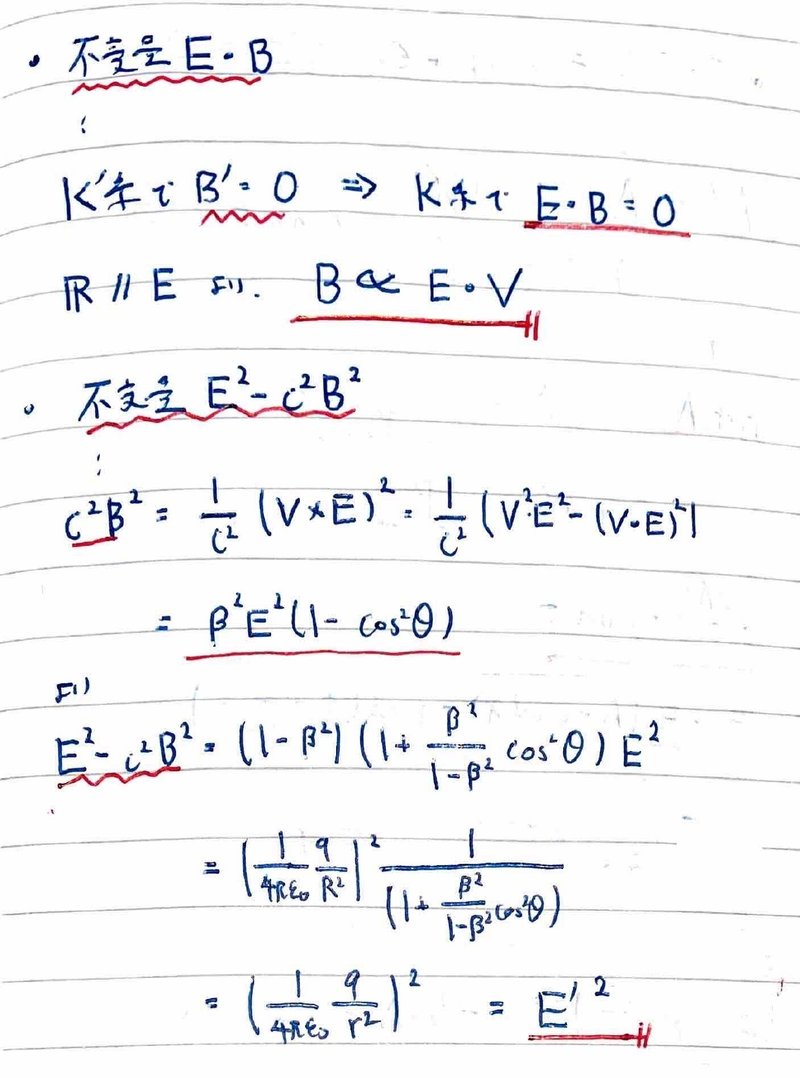 • 不変量 E・B
:
K'系で B' = 0 ⇒ K系で E・B = 0
R // E より. B ∝ E・V
• 不変量 E² - c²B²
:
c²B² = 1/c² (V×E)² = 1/c² (V²E² - (V・E)²)
= β²E²(1 - cos²θ)
より
E² - c²B² = (1-β²) (1 + β²/(1-β²) cos²θ) E²
= (1/4πε₀ q/R²)² 1/(1 + β²/(1-β²) cos²θ)
= (1/4πε₀ q/r²)² = E'²